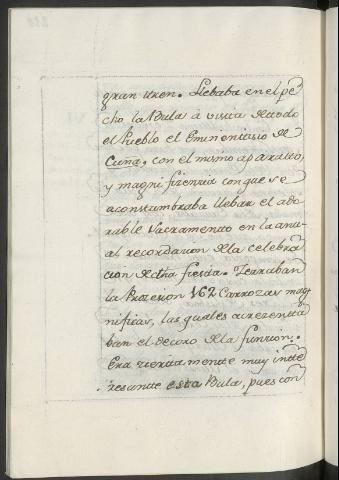 gran tren. Llebaba en el pe
cho la Bula à vista de todo
el Pueblo el Eminentisio de
Cuña, con el mismo aparatto,
y magnifizenzia con que se
acostumbraba llebar el ado
rable Sacramento en la anu
al recordazion de la celebra
cion de dha fiesta. Zerraban
la Prozesion 162 Carrozas mag
nificas, las quales acrezentta
ban el decoro de la funzion.
Era ziertamente muy intte
resante esta Bula, pues con